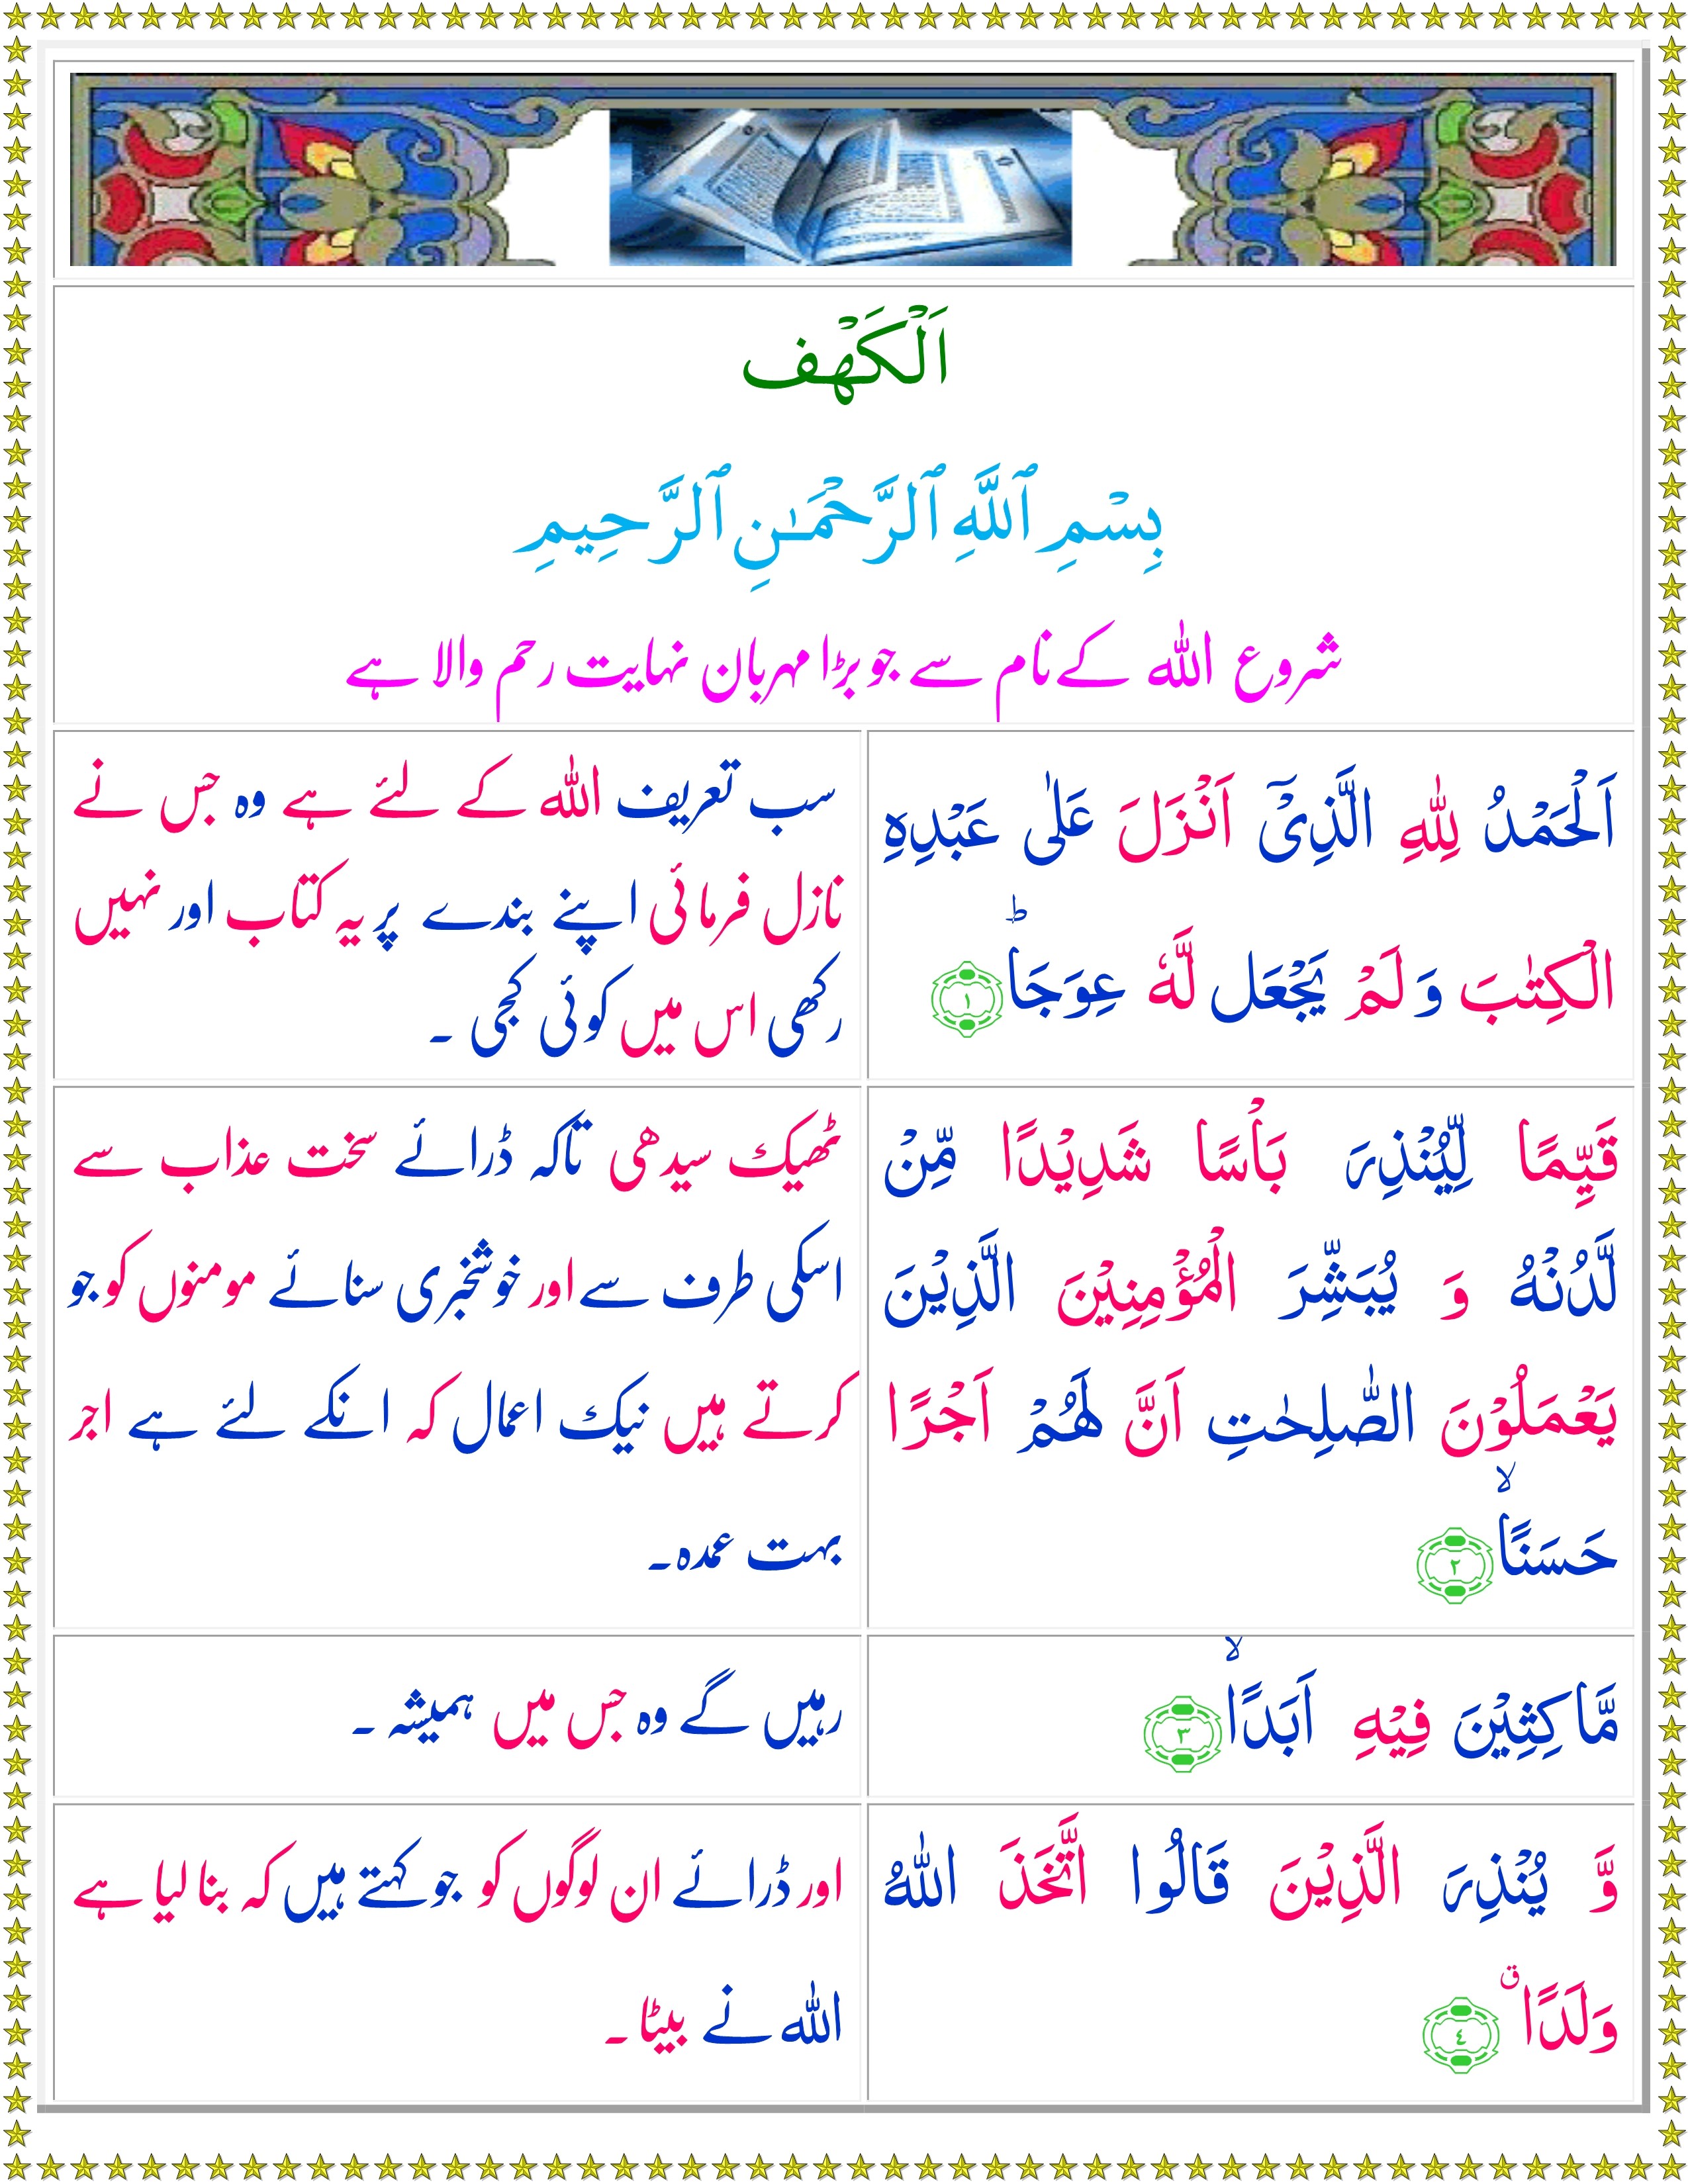 اَلْكَهْف
بِسْمِ ٱللَّهِ ٱلرَّحْمَـٰنِ ٱلرَّحِيمِ
شروع اللہ کے نام سے جو بڑا مہربان نہایت رحم والا ہے
اَلْحَمْدُ لِلّٰهِ الَّذِیْۤ اَنْزَلَ عَلٰی عَبْدِهِ
الْكِتٰبَ وَ لَمْ یَجْعَل لَّهٗ عِوَجَاؕ ۝۱
سب تعریف اللہ کے لئے ہے وہ جس نے
نازل فرمائی اپنے بندے پر یہ کتاب اور نہیں
رکھی اس میں کوئی کجی ۔
قَیِّمًا لِّیُنْذِرَ بَاْسًا شَدِیْدًا مِّنْ
لَّدُنْهُ وَ یُبَشِّرَ الْمُؤْمِنِیْنَ الَّذِیْنَ
یَعْمَلُوْنَ الصّٰلِحٰتِ اَنَّ لَهُمْ اَجْرًا
حَسَنًاۙ ۝۲
ٹھیک سیدھی تاکہ ڈرائے سخت عذاب سے
اسکی طرف سے اور خوشخبری سنائے مومنوں کو جو
کرتے ہیں نیک اعمال کہ انکے لئے ہے اجر
بہت عمدہ۔
مَّاكِثِیْنَ فِیْهِ اَبَدًاۙ ۝۳
رہیں گے وہ جس میں ہمیشہ ۔
وَّ یُنْذِرَ الَّذِیْنَ قَالُوا اتَّخَذَ اللّٰهُ
وَلَدًاۗق ۝٤
اور ڈرائے ان لوگوں کو جو کہتے ہیں کہ بنا لیا ہے
اللہ نے بیٹا ۔